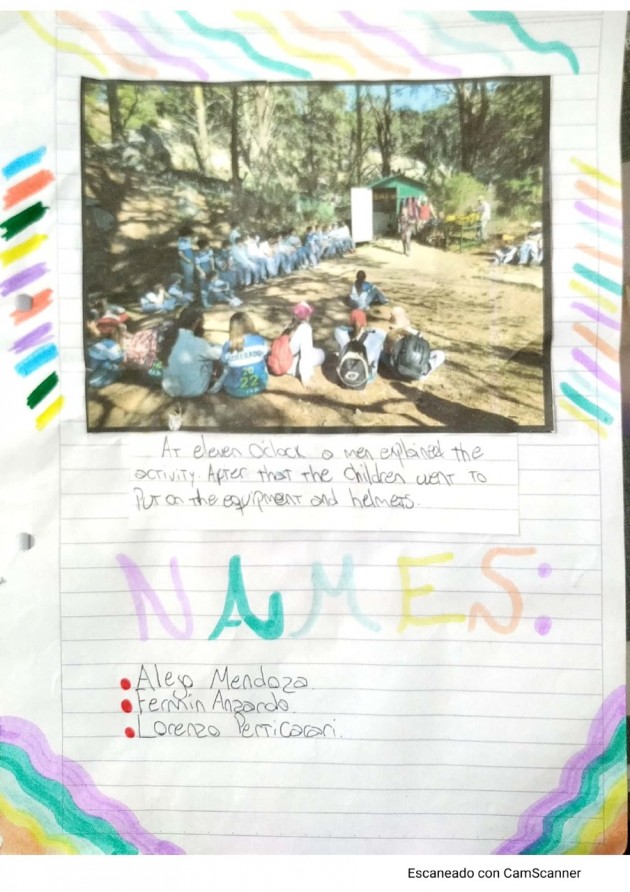 At eleven O'clock a men explained the
activity. After that the children went to
Put on the equipment and helmets.
NAMES:
Aleyo Mendoza.
Fermin Anzardo.
Lorenzo
22
Escaneado con CamScanner